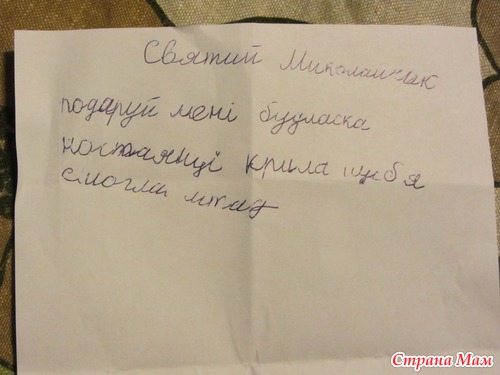 Святий Миколайчик
подаруй мені будласка
настаящі крила щоб я
смогла літад
Страна Мам